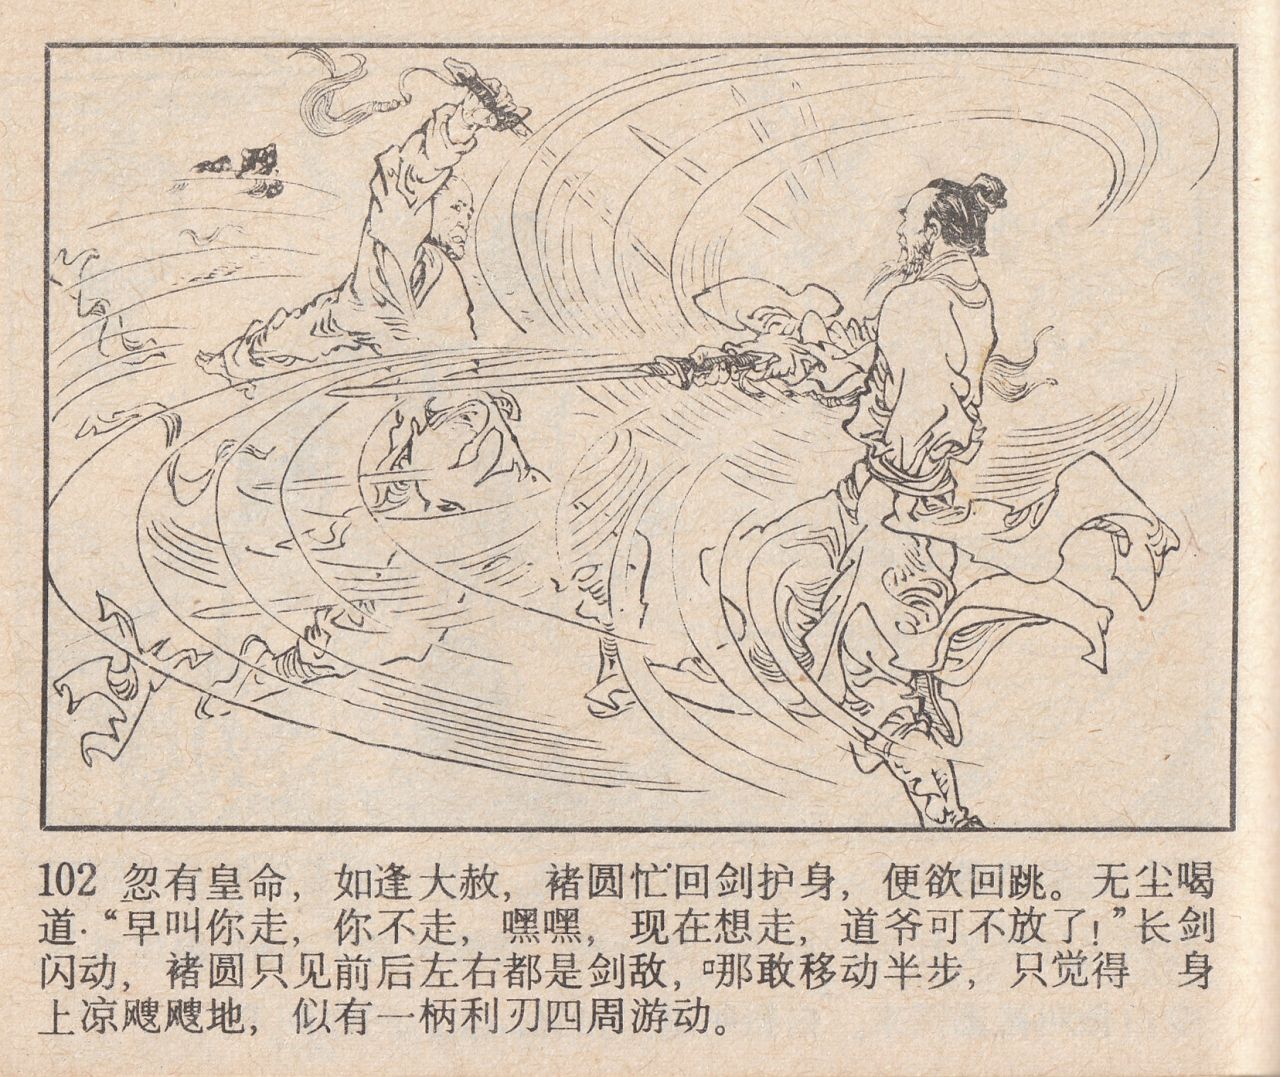 102 忽有皇命，如逢大赦，褚圆忙回剑护身，便欲回跳。无尘喝
道·“早叫你走，你不走，嘿嘿，现在想走，道爷可不放了！”长剑
闪动，褚圆只见前后左右都是剑敌，哪敢移动半步，只觉得 身
上凉飕飕地，似有一柄利刃四周游动。